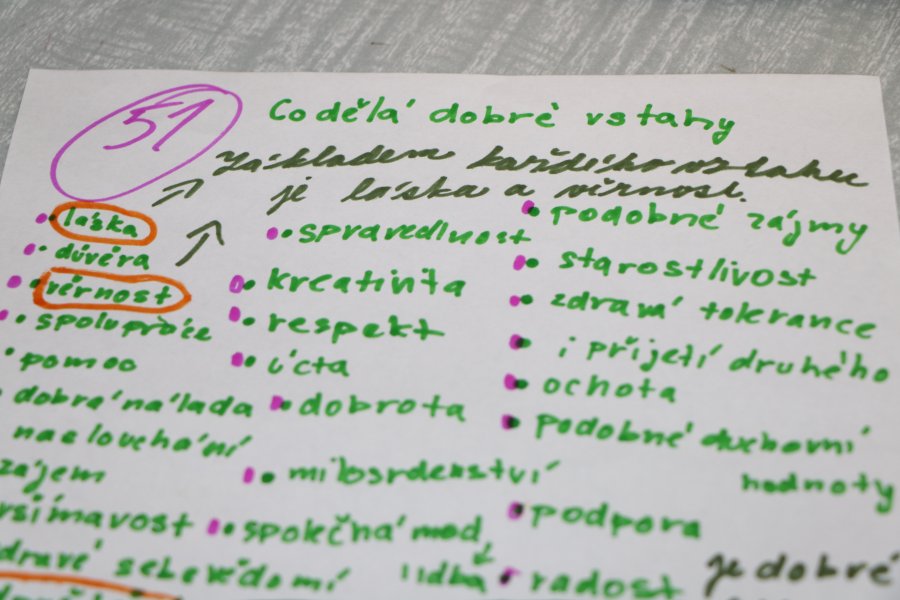 51
Co dělá dobré vstahy
Základem každého vztahu
je láska a věrnost.
láska
důvěra
věrnost
spolupráce
pomoc
dobrá nálada
naslouchání
zájem
dravé sebevědomí
spravedlnost
kreativita
respekt
úcta
dobrota
milosrdenství
společná mod
lidba
podobné zájmy
starostlivost
zdravá tolerance
i přijetí druhého
ochota
podobné duchovní
hodnoty
podpora
radost
je dobré